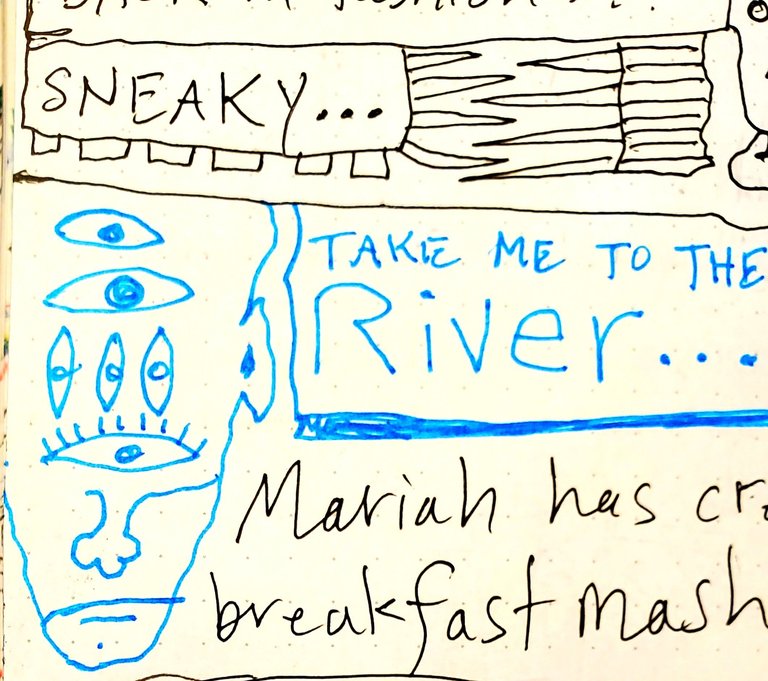 SNEAKY...
TAKE ME TO THE
River...
Mariah has
breakfast mash